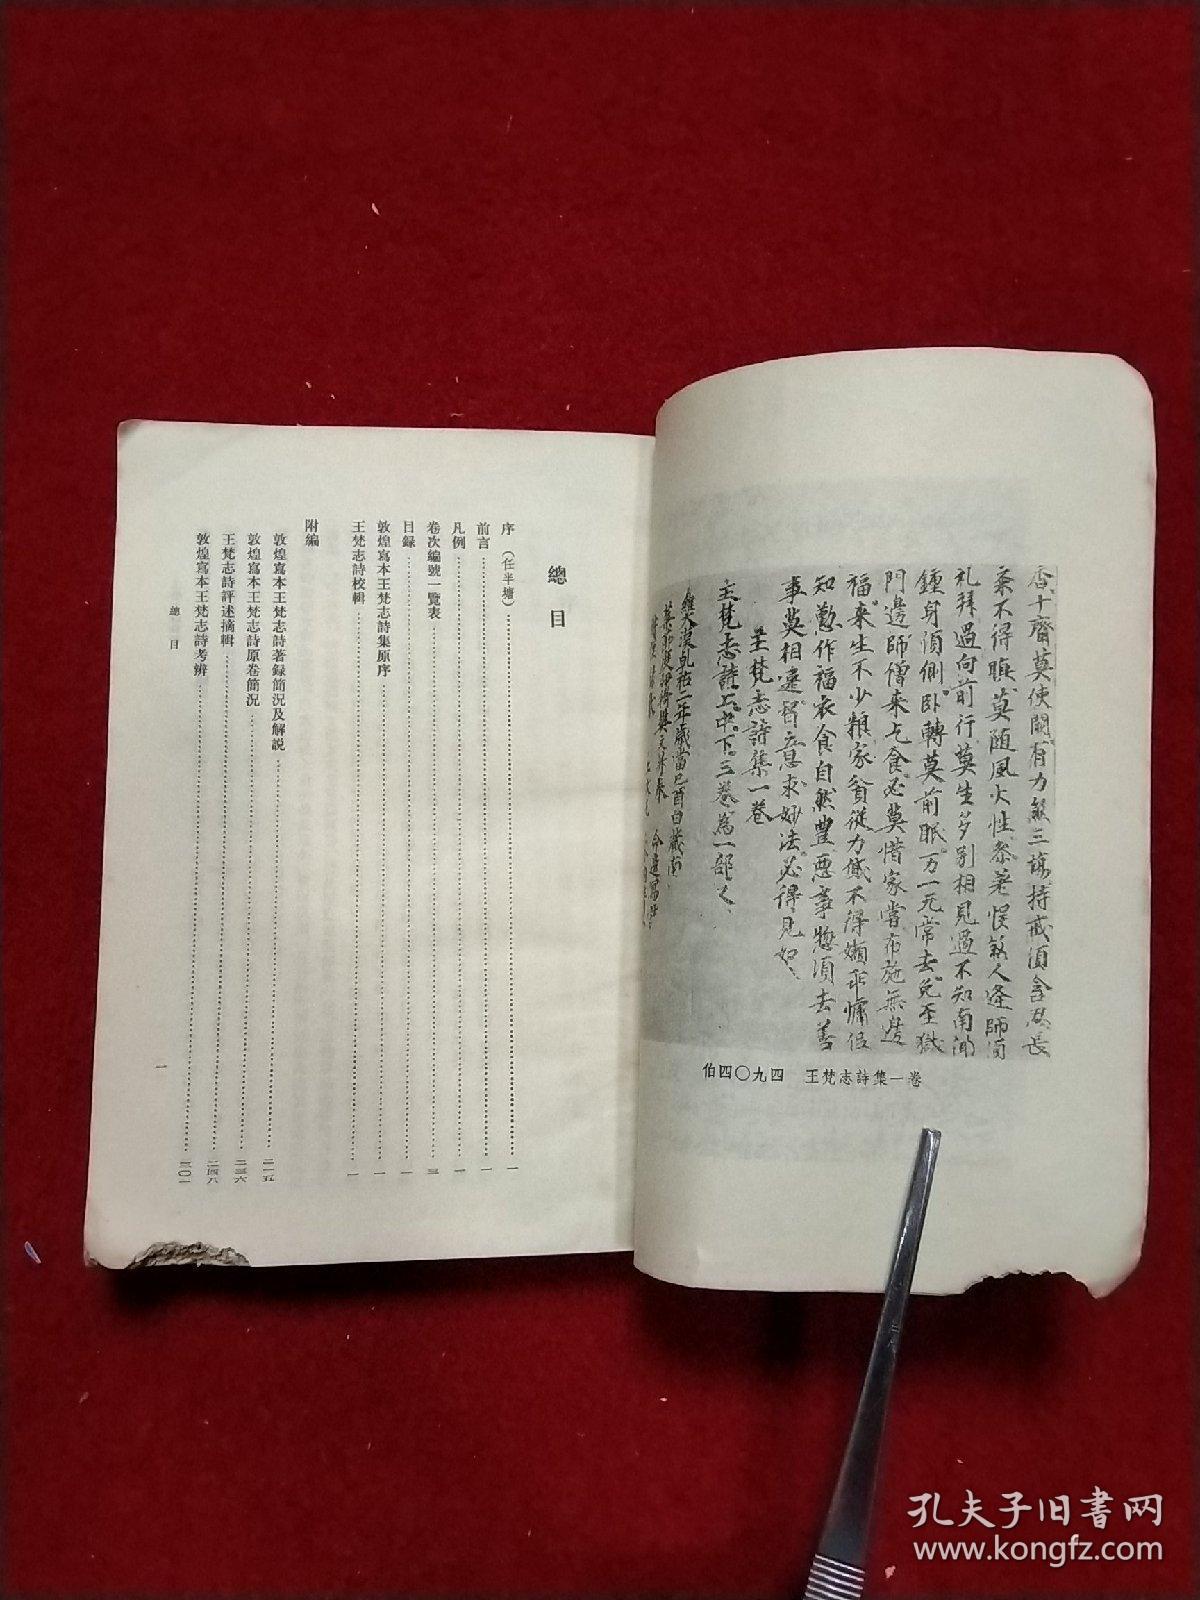 香十齋莫使闕有力
三
持戒須含
長
不得
莫隨風火性
人逢師須
礼拜過向前行莫生多別相見過不知南
鍾身須側卧轉莫前眠万一死常去免至獄
門邊師僧來乞食必莫惜家常布施無
福來生不少粮家貧從力
不得嬾
慵
知
作福衣食自然豐惡事惣須去善
事莫相違
意求妙法必得見如
王梵志詩集一卷
王梵志詩上中下三卷為一部
維大漢乾祐二年歲當己酉白藏
伯四〇九四 王梵志詩集一卷
總目
序(任半塘)……一
前言……一
凡例……一
卷次編號一覽表……三
目録……一
敦煌寫本王梵志詩集原序……一
王梵志詩校輯……一
附編
敦煌寫本王梵志詩著録簡況及解説……二一五
敦煌寫本王梵志詩原卷簡況……二三六
王梵志詩評述摘輯……二四八
敦煌寫本王梵志詩考辨……三〇一
總目
一
孔夫子旧书网
www.kongfz.com